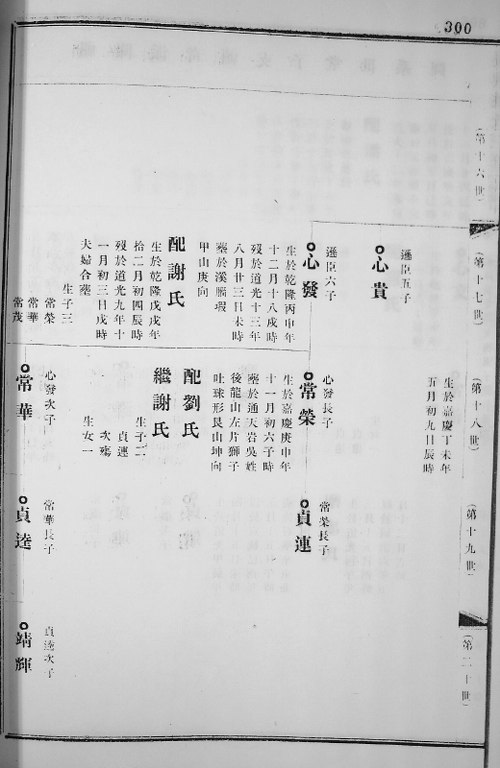 300
(第十六世)
(第十七世)
(第十八世)
(第十九世)
(第二十世)
生於嘉慶丁未年
五月初九日辰時
遜臣五子
心貴
遜臣六子
心發
生於乾隆丙申年
十二月十八戌時
歿於道光十三年
八月廿三日未時
塟於溪
甲山庚向
配謝氏
生於乾隆戊戌年
拾二月初四辰時
歿於道光九年十
一月初三日戌時
夫婦合塟
生子三
常榮
常華
常茂
心發長子
常榮
生於嘉慶庚申年
十一月初六子時
塟於通天岩吳姓
後龍山左片獅子
吐球形艮山坤向
配劉氏
繼謝氏
生子二
貞連
次殤
生女一
心發次子
常華
常榮長子
貞連
常華長子
貞逵
貞逵次子
靖輝